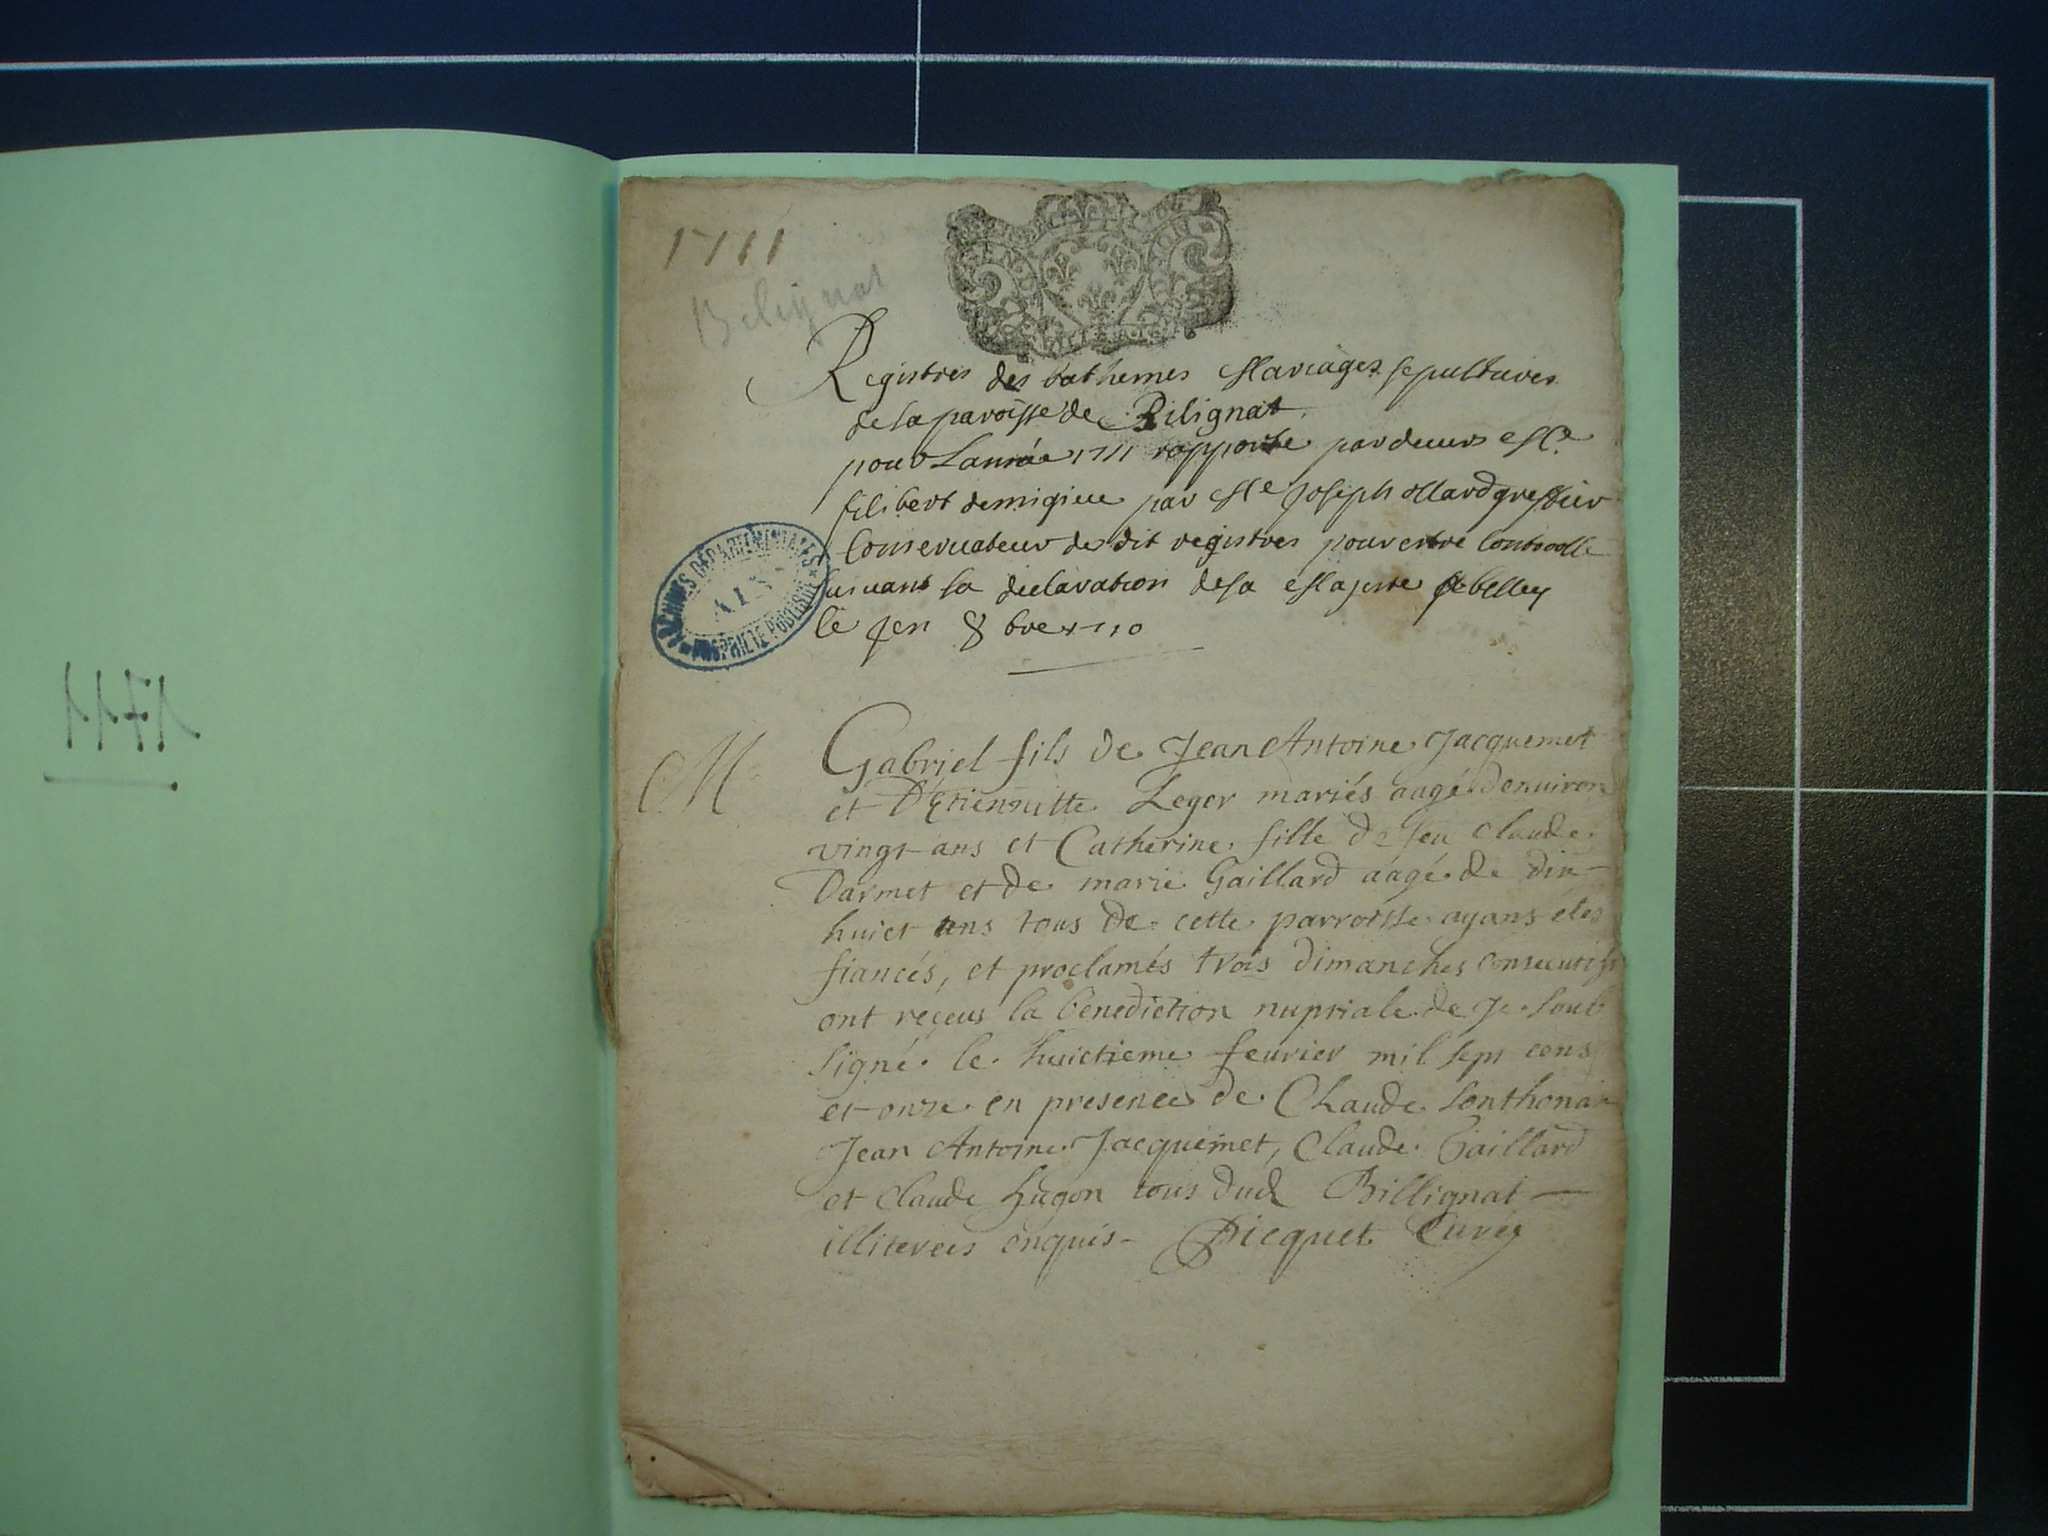 1711
Belignat
Registres des bathemes Mariages sepultures
de la paroisse de Bilignat
pour Lannée 1711 rapporte pardeuers Me
filibert demigieu par Me Joseph greffier
Conservateur des dit registres pour estre controolle
suivant la declaration de sa Majeste belley
le 8 bre 1710
ARCHIVES DÉPARTEMENTALES
AIN
PROPRIÉTÉ PUBLIQUE
1711
M
Gabriel fils de Jean Antoine Jacquemet
et D'Etiennette Leger mariés aagé denuiron
vingt ans et Catherine fille de feu Claude
Darmet et de marie Gaillard aagé de dix-
huict ans tous de cette parroisse ayans etes
fiancés, et proclamés trois dimanches consecutifs
ont reçeus la benediction nuptiale de Je soub
signé le huictieme feurier mil sept cens
et onze en presence de Claude Sonthona
Jean Antoine Jacquemet, Claude Gaillard
et Claude Hugon tous dud Billignat
illiterees enquis- Picquet Curé